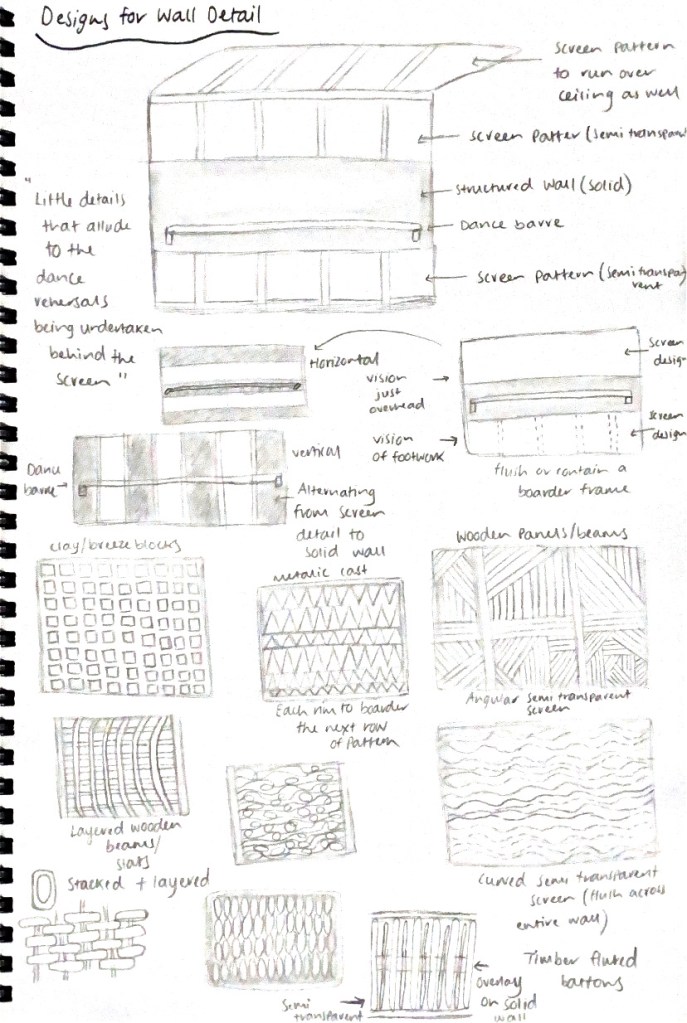 Designs for Wall Detail
Screen Pattern
to run over
ceiling as well
screen patter (semi transparant
structured wall (solid)
Dance barre
screen pattern (semi transpar
rent
"Little details
that allude
to the
dance
rehersals
being undertaken
behind the
screen"
Horizontal
vision
just
overhead
vision
of footwork
screen
design
screen
design
flush or contain a
boarder frame
vertical
Dance
barre
Alternating
from screen
detail to
solid wall
clay/breeze blocks
Metalic cast
Wooden Panels/beams
Each rim to boarder
the next row
of pattern
Angular semi transparent
screen
Layered wooden
beams/
slats
Curved semi transparent
screen (flush across
entire wall)
Stacked + layered
Timber fluted
battons
overlay
on solid
wall
semi
transparent